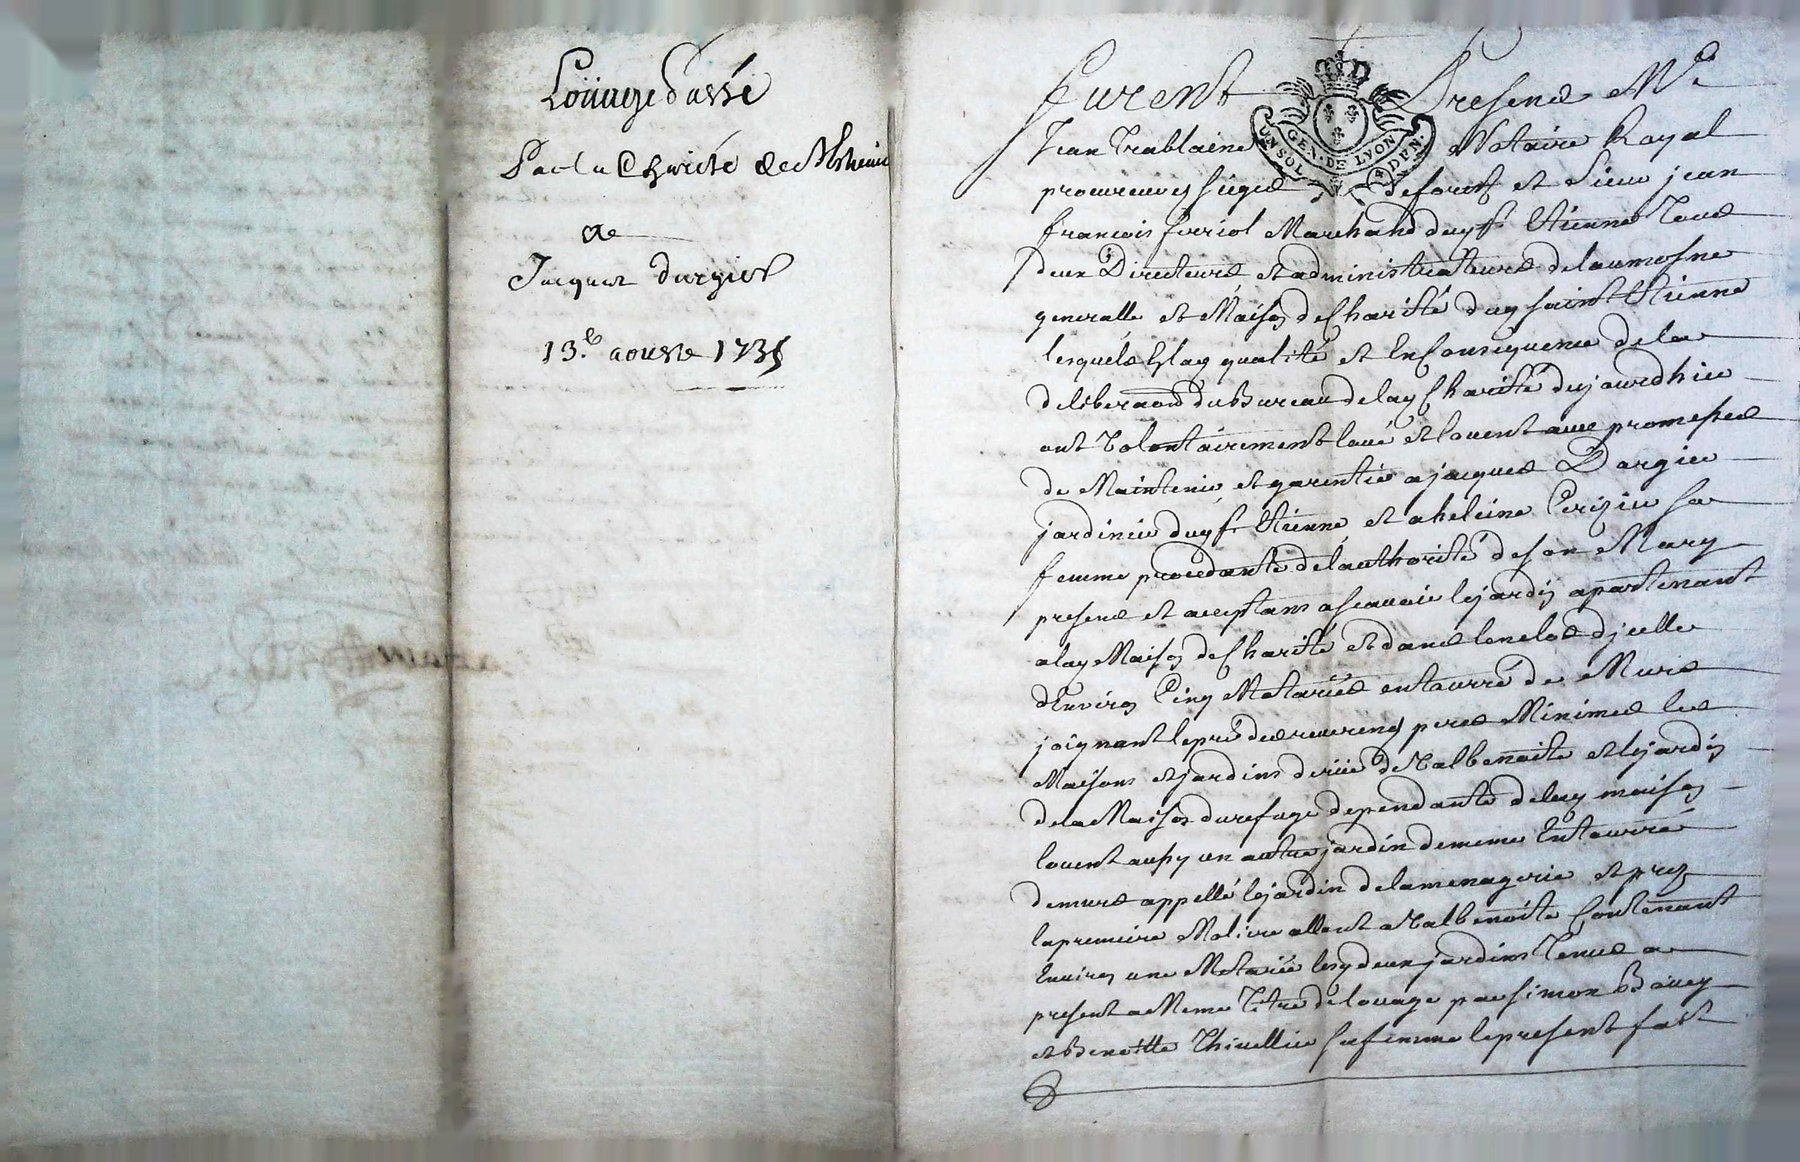 Loüage d'assé
Par la Charité de St Estienne
a
Jacques dargier
13.e aouste 1735
furent presens Me
GEN. DE LYON
UN SOL
Jean Trablaine Notaire Royal
procureur es sieges de forest et Sieur jean
francois ferriol Marchand dud st Etienne Tous
deux Directeurs et administrateurs de laumosne
generalle et Maison de Charitté dud saint Etienne
lesquels esd qualité et En Consequence de la
deliberaon du Bureau de lad Charitté dejourdhier
ont Volontairement loué et louent avec promesses
de Maintenir et garentir a jacques Dargier
jardinier dud st Etienne et a heleine Perizier sa
femme procedante de lauthorité de son Mary
presens et acceptans ascavoir le jardin apartenant
a lad Maison de Charitté et dans lenclos dicelle
dEnviron Cinq Metariés entourré de Murs
joignant le pré des reverend peres Minimes les
Maisons et jardins de rüe de Valbenoite et le jardin
de la Maison du refuge dependante de lad maison
louent aussy un autre jardin de meme Entourré
de murs appellé le jardin de la menagerie et prez
la premiere Moliere allant a Valbenoite Contenant
Environ une Metarié lesd deux jardins Tenus a
present a Meme Titre de louage par simon Bouey
et Benoitte Thivellier sa femme le present fait